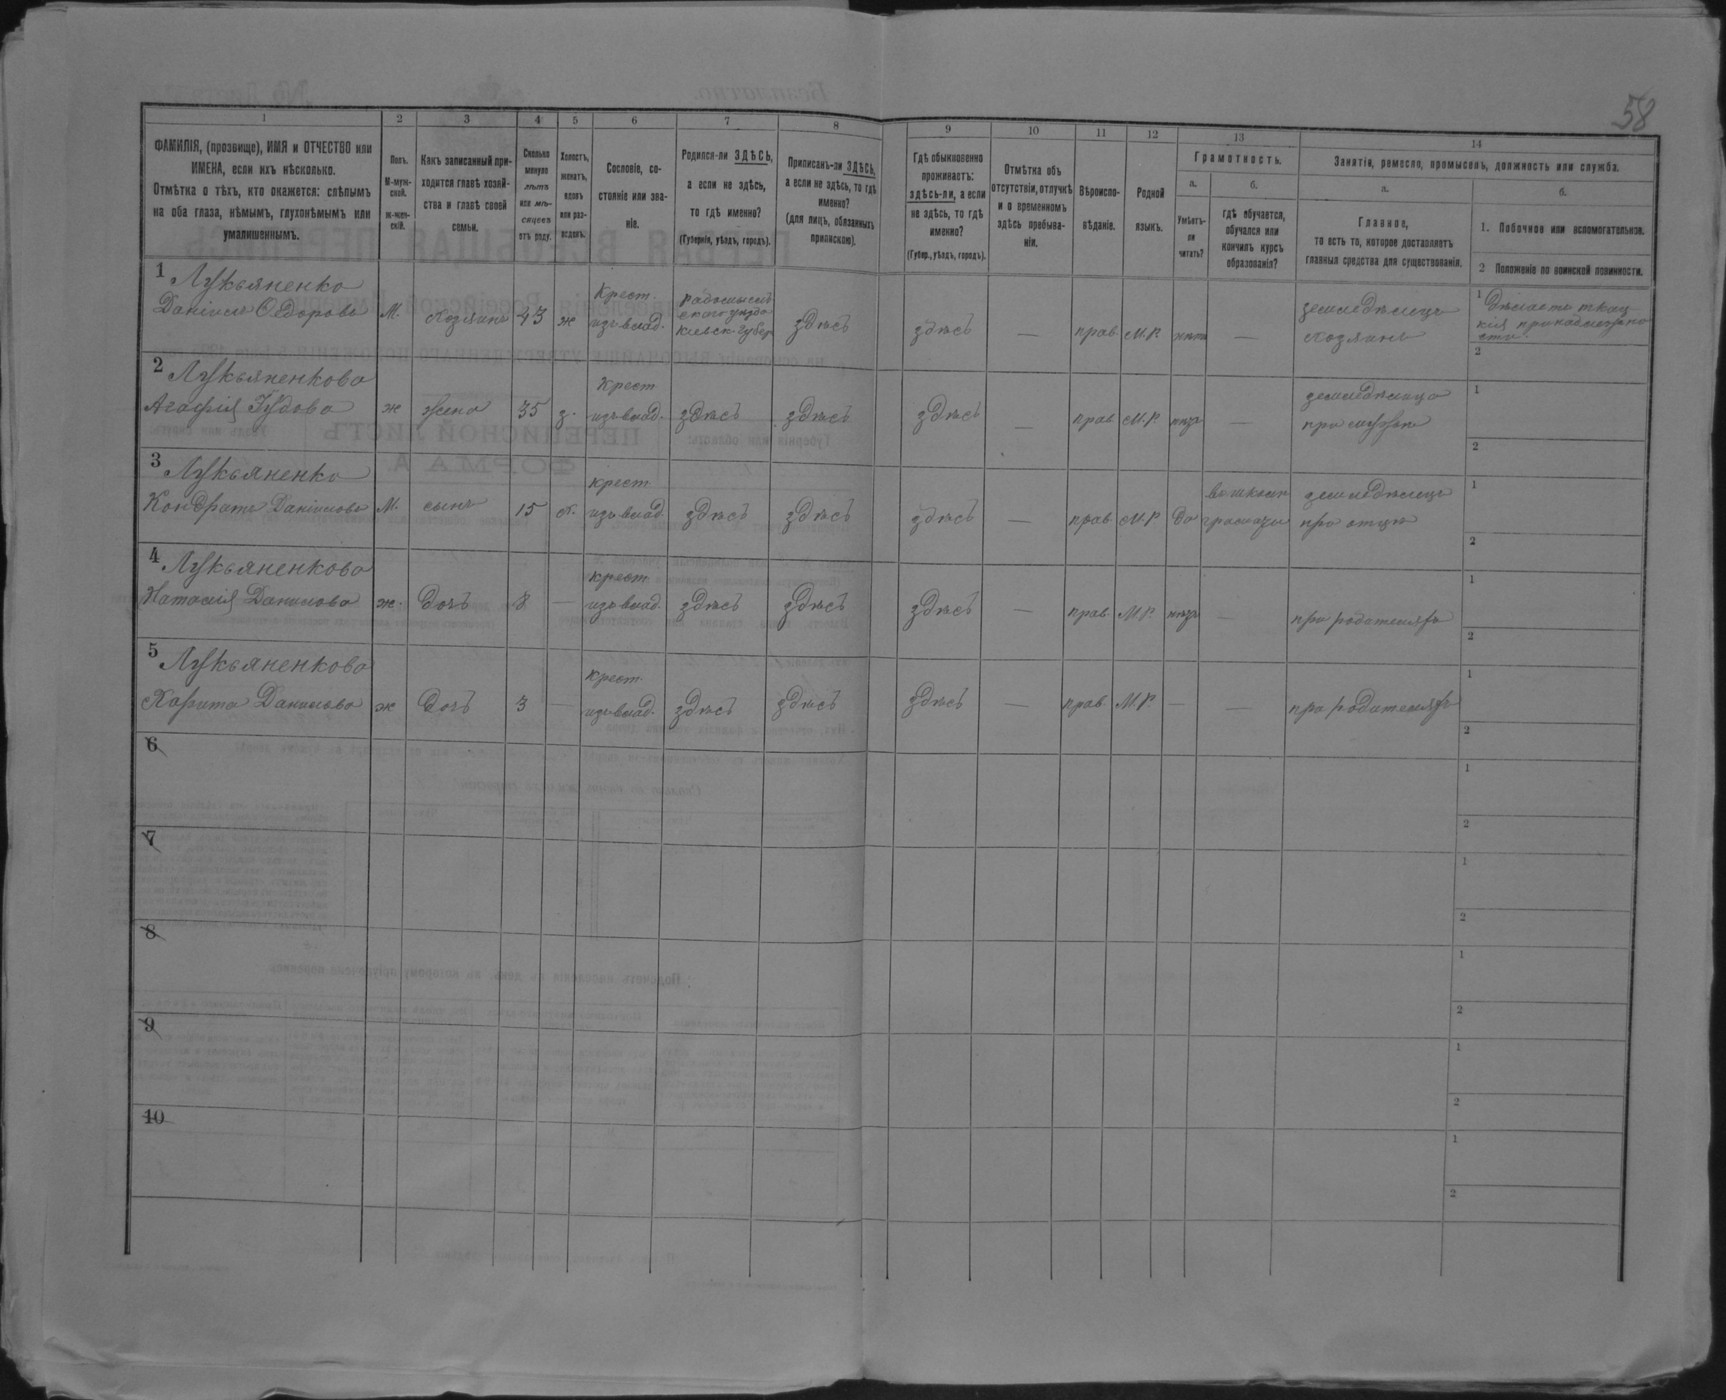 58
1 2 3 4 5 6 7 8 9 10 11 12 13 14
ФАМИЛІЯ, (прозвище), ИМЯ и ОТЧЕСТВО или
ИМЕНА, если ихъ нѣсколько.
Отмѣтка о тѣхъ, кто окажется: слѣпымъ
на оба глаза, нѣмымъ, глухонѣмымъ или
умалишеннымъ.
Полъ.
М-муж-
ской.
ж-жен-
скій.
Какъ записанный при-
ходится главѣ хозяй-
ства и главѣ своей
семьи.
Сколько
минуло
лѣтъ
или мѣ-
сяцевъ
отъ роду.
Холостъ,
женатъ,
вдовъ
или раз-
веденъ.
Сословіе, со-
стояніе или зва-
ніе.
Родился-ли ЗДѢСЬ,
а если не здѣсь,
то гдѣ именно?
(Губернія, уѣздъ, городъ).
Приписанъ-ли ЗДѢСЬ,
а если не здѣсь, то гдѣ
именно?
(для лицъ, обязанныхъ
припискою).
Гдѣ обыкновенно
проживаетъ:
здѣсь-ли, а если
не здѣсь, то гдѣ
именно?
(Губер., уѣздъ, городъ).
Отмѣтка объ
отсутствіи, отлучкѣ
и о временномъ
здѣсь пребыва-
ніи.
Вѣроиспо-
вѣданіе.
Родной
языкъ.
Грамотность.
а.
Умѣетъ-
ли
читать?
б.
гдѣ обучается,
обучался или
кончилъ курсъ
образованія?
Занятія, ремесло, промыселъ, должность или служба.
а.
Главное,
то есть то, которое доставляетъ
главныя средства для существованія.
б.
1. Побочное или вспомогательное.
2 Положеніе по воинской повинности.
1 Лукьяненко
Даніилъ Ѳедоровъ М. хозяинъ 43 ж
Крест.
изъ влад.
радомысль
скаго уѣзда
Кіевск. губер
здѣсь здѣсь — прав. М.Р. нѣтъ —
земледѣлецъ
хозяинъ
1
2
2 Лукьяненкова
Агафія ж жена 35 з.
Крест
изъ влад. здѣсь здѣсь здѣсь — прав М.Р. —
земледѣлица
при мужѣ
1
2
3 Лукьяненко
Кондратъ Даніиловъ М. сынъ 15 х.
крест
изъ влад здѣсь здѣсь здѣсь — прав М.Р. да
земледѣлецъ
при отцѣ
1
2
4 Лукьяненкова
Наталія Данилова ж. дочь 8 —
крест
изъ влад. здѣсь здѣсь здѣсь — прав. М.Р. —
при родителяхъ
1
2
5 Лукьяненкова
Данилова ж дочь 3 —
крест
изъ влад. здѣсь здѣсь здѣсь — прав. М.Р. — —
при родителяхъ
1
2
6
1
2
7
1
2
8
1
2
9
1
2
10
1
2